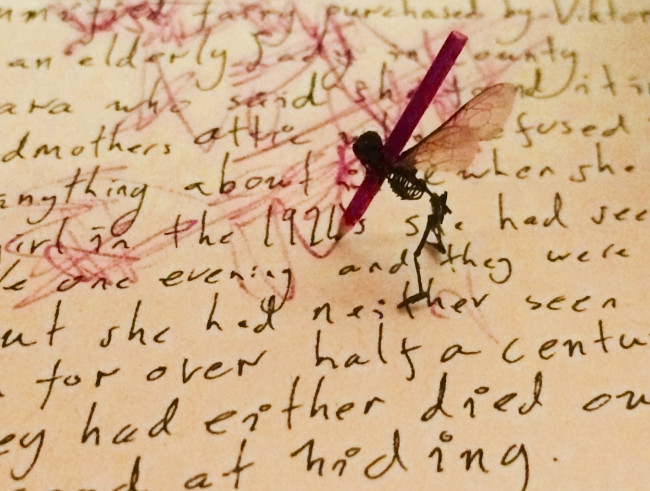 mmified fairy purchased by Viktor
an elderly lady in County
ara who said she found it in
dmothers attic who refused
anything about it when she
girl in the 1920s she had see
le one evening and they were
ut she had neither seen
for over half a centu
ey had either died ou
at hiding.